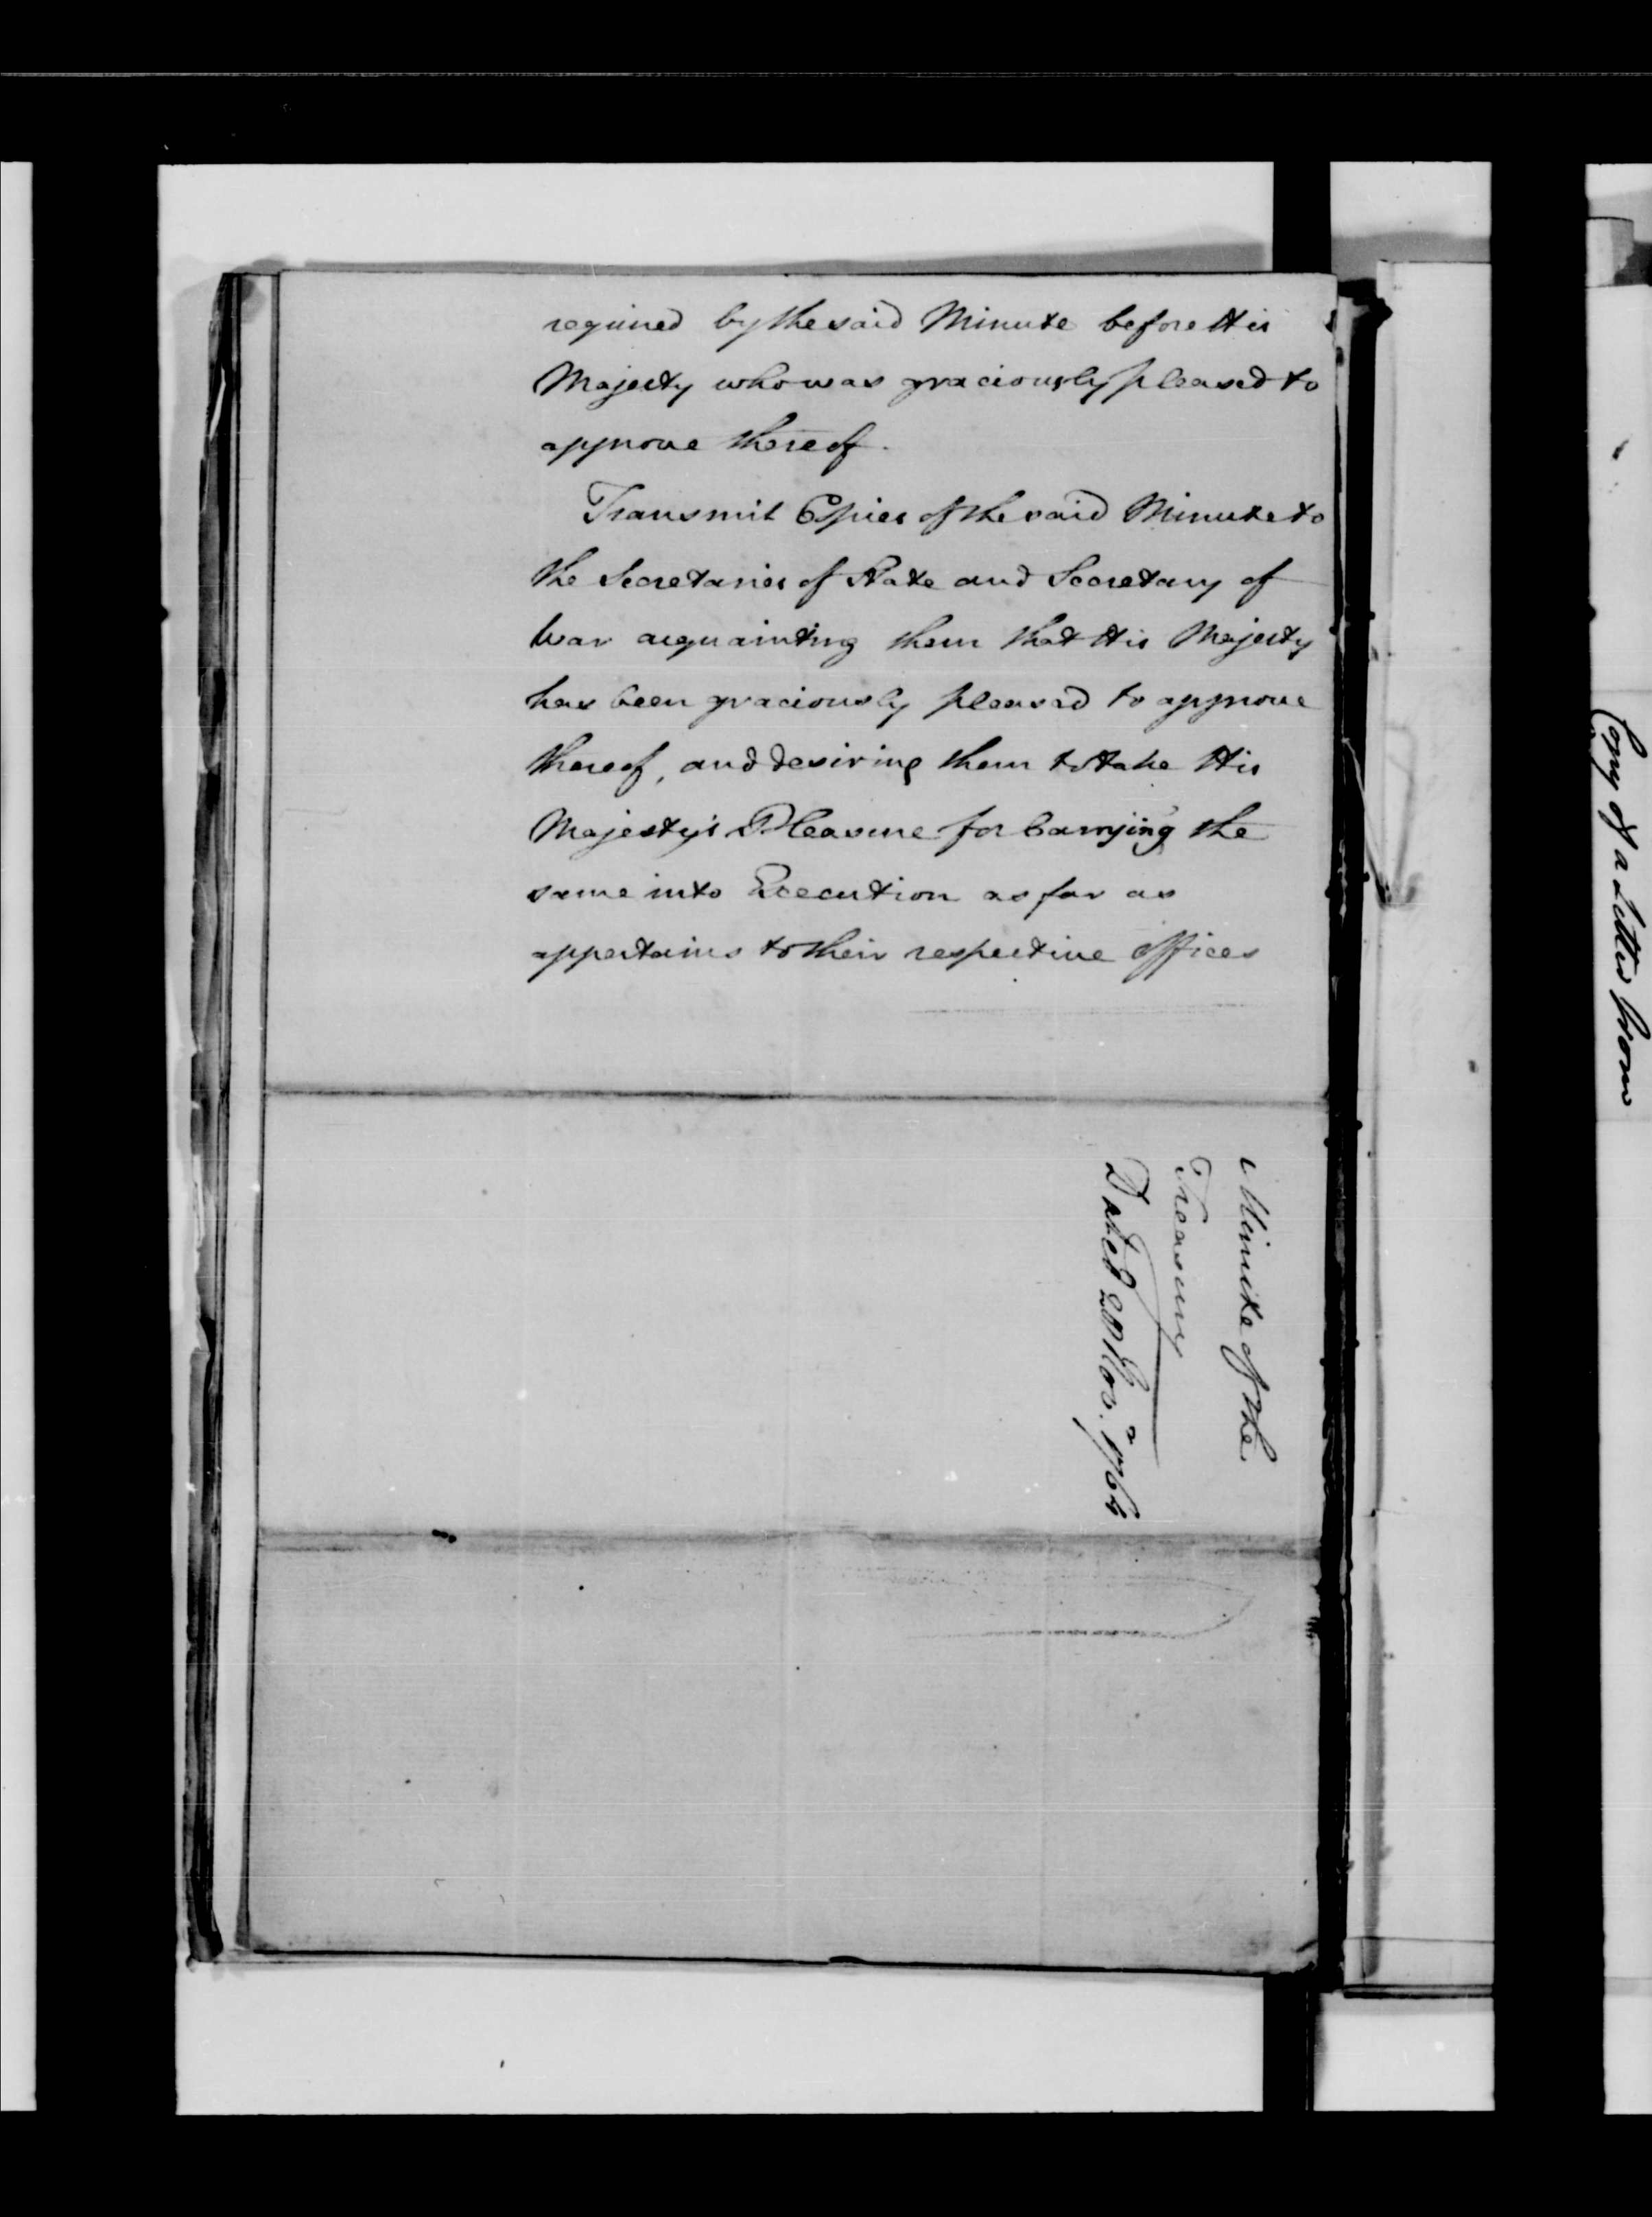 required by the said Minute before His
Majesty who was graciously pleased to
approve thereof.
Transmit Copies of the said Minute to
the Secretaries of State and Secretary of
War acquainting them that His Majesty
has been graciously pleased to approve
thereof, and desiring them to take His
Majesty's Pleasure for Carrying the
same into Execution as far as
appertains to their respective offices
Minute of the
Treasury
Dated 28 Nov.r 1764
Copy of a Letter from